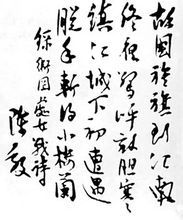 故国旌旗到江南
终夜惊呼敌胆寒
镇江城下初遭遇
脱手斩得小楼兰
录卫国处女战诗
陈毅